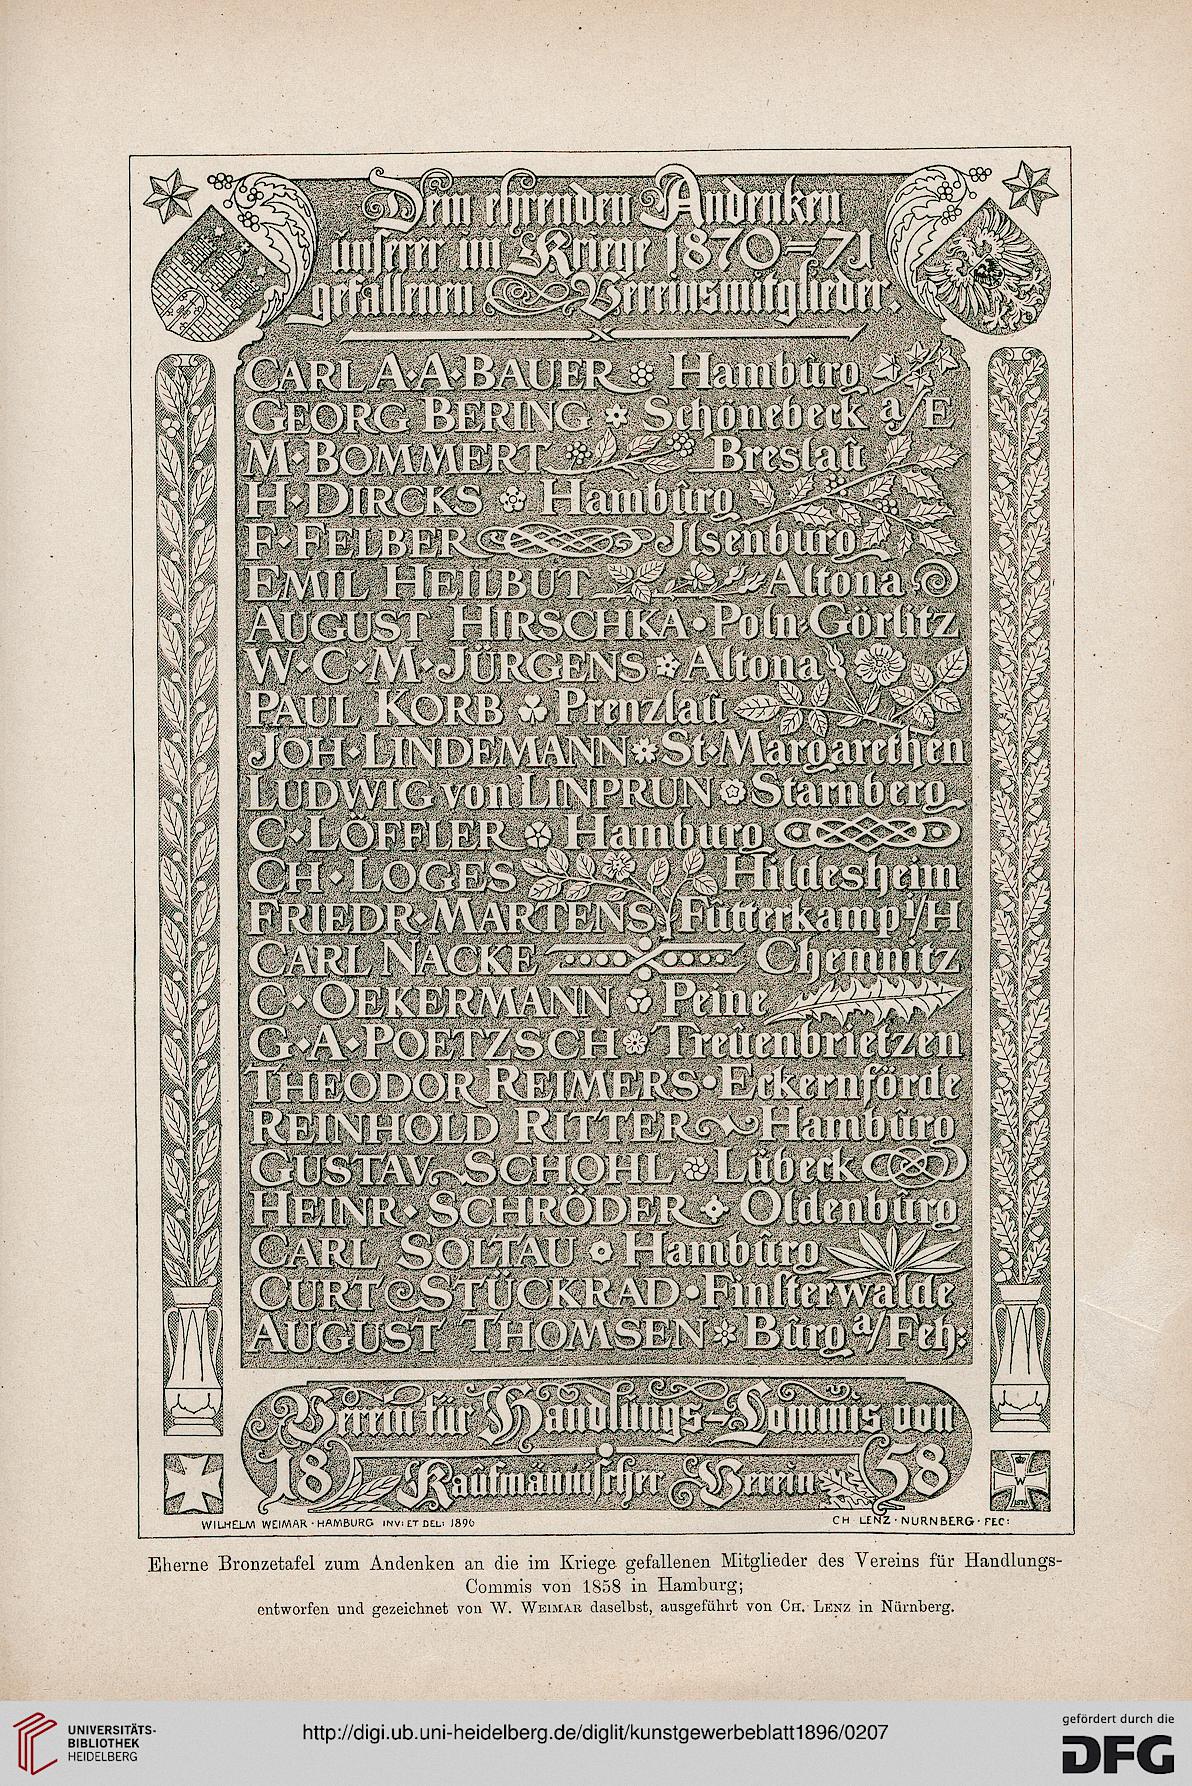 Dem ehrenden Andenken
unserer im Kriege 1870=71
gefallenen Vereinsmitglieder.
CARL A·A·BAUER Hambûrg
GEORG BERING Schönebeck a/E
M·BOMMERT Breslaû
H·DIRCKS Hambûrg
F·FELBER Jlsenburg
EMIL HEILBUT Altona
AUGUST HIRSCHKA·Poln·Görlitz
W·C·M·JÜRGENS Altona
PAUL KORB Prenzlaû
JOH·LINDEMANN St·Margarethen
LUDWIG von LINPRUN Starnberg
C·LÖFFLER Hamburg
CH·LOGES Hildesheim
FRIEDR·MARTENS Fûtterkamp i/H
CARL NACKE Chemnitz
C·OEKERMANN Peine
G·A·POETZSCH Treûenbrietzen
THEODOR REIMERS·Eckernförde
REINHOLD RITTER Hambûrg
GUSTAV SCHOHL Lübeck
HEINR·SCHRÖDER Oldenbûrg
CARL SOLTAU Hambûrg
CURT STÜCKRAD·Finsterwalde
AUGUST THOMSEN Bûrg a/Feh:
Verein für Handlungs-Commis von
18 58
Kaûfmännischer Verein
WILHELM WEIMAR · HAMBURG INV: ET DEL: 1896
CH LENZ · NURNBERG · FEC:
Eherne Bronzetafel zum Andenken an die im Kriege gefallenen Mitglieder des Vereins für Handlungs-
Commis von 1858 in Hamburg;
entworfen und gezeichnet von W. WEIMAR daselbst, ausgeführt von CH. LENZ in Nürnberg.
UNIVERSITÄTS-
BIBLIOTHEK
HEIDELBERG
http://digi.ub.uni-heidelberg.de/diglit/kunstgewerbeblatt1896/0207
gefördert durch die
DFG